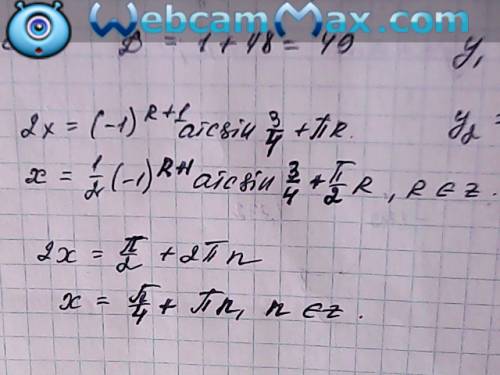 WebcamMax.com
D = 1 + 48 = 49 y₁
2x = (-1)^{k+1} arcsin 3/4 + πk. y₂ =
x = 1/2 (-1)^{k+1} arcsin 3/4 + π/2 k, k ∈ z.
2x = π/2 + 2πn
x = π/4 + πn, n ∈ z.